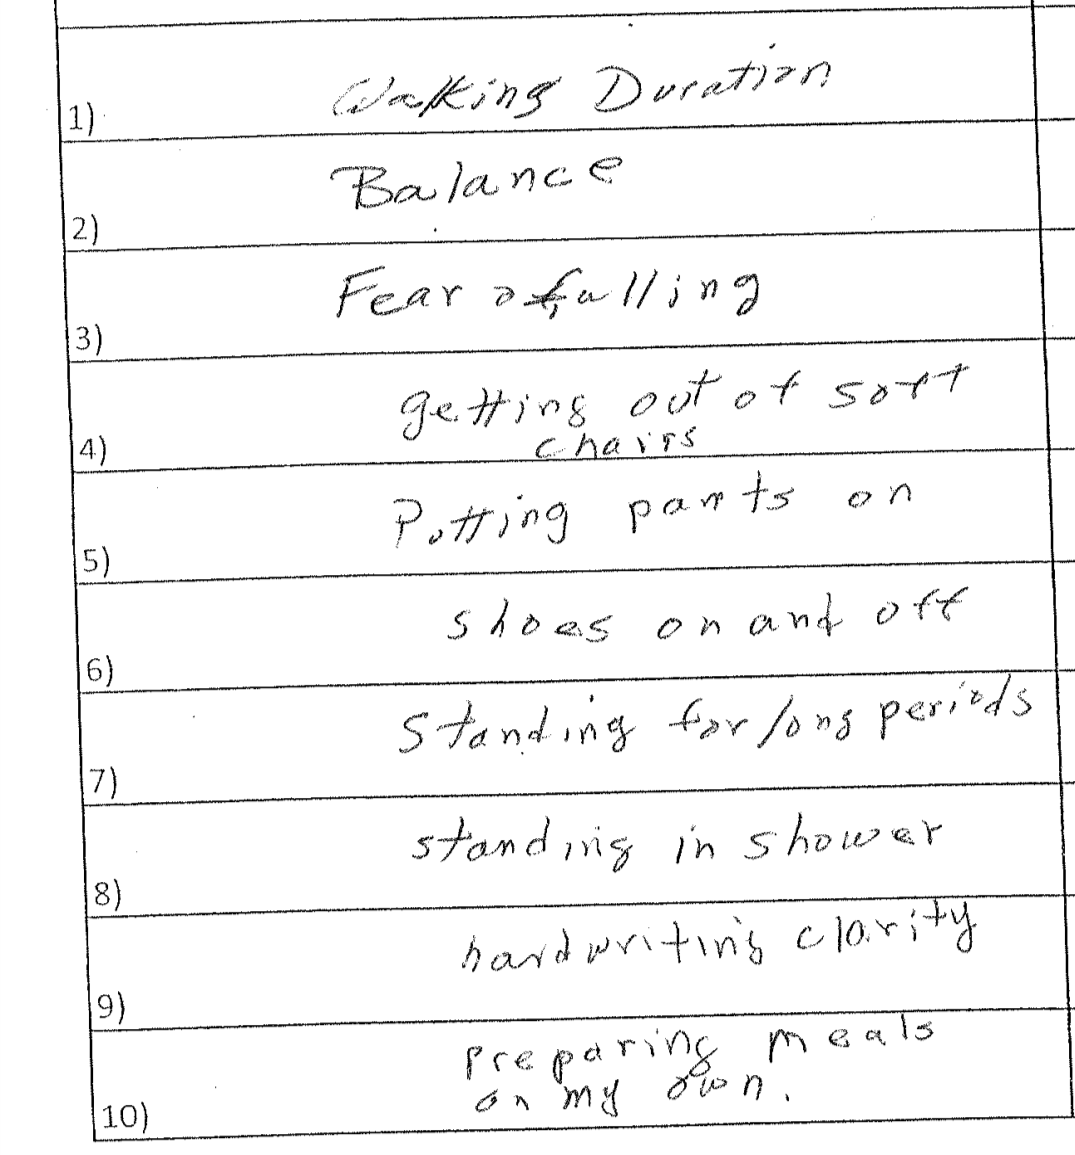 1) Walking Duration
2) Balance
3) Fear of falling
4) getting out of soft
chairs
5) Putting pants on
6) shoes on and off
7) Standing for long periods
8) standing in shower
9) handwriting clarity
10) Preparing meals
on my own.